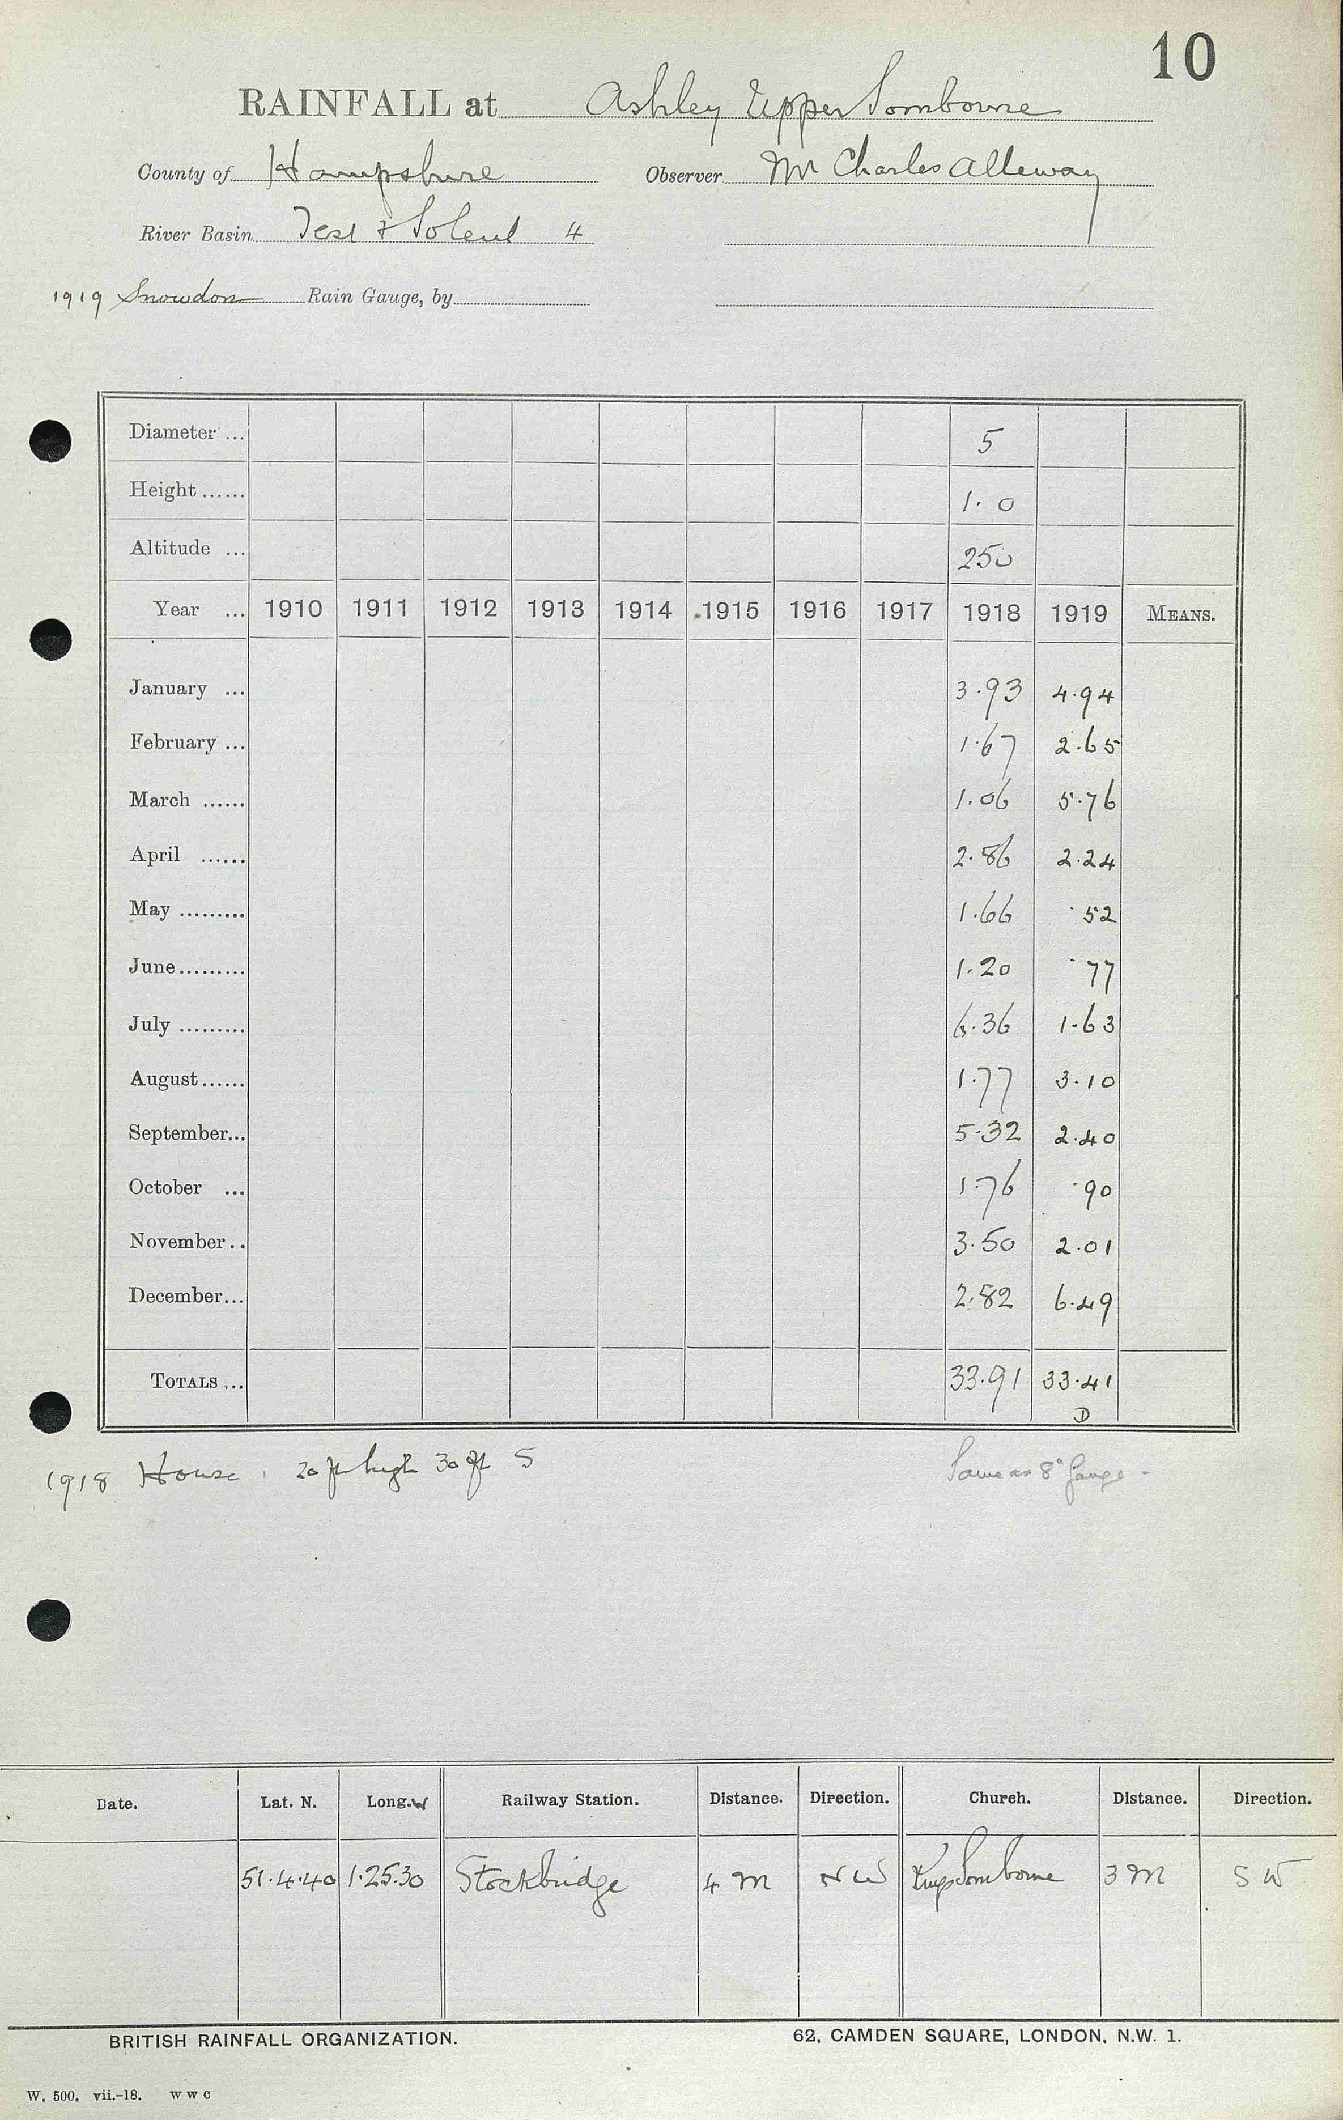 10
RAINFALL at Ashley Upper Somborne
County of Hampshire Observer Mr Charles Alleway
River Basin Test & Solent 4
1919 Snowdon Rain Gauge, by
Diameter ... 5
Height ...... 1.0
Altitude ... 250
Year ... 1910 1911 1912 1913 1914 1915 1916 1917 1918 1919 MEANS.
January ... 3.93 4.94
February ... 1.67 2.65
March ...... 1.06 5.76
April ...... 2.86 2.24
May ......... 1.66 .52
June ......... 1.20 .77
July ......... 6.36 1.63
August ...... 1.77 3.10
September... 5.32 2.40
October ... 1.76 .90
November .. 3.50 2.01
December... 2.82 6.49
TOTALS ... 33.91 33.41
D
1918 House, 20 ft high 30 ft S Same as 8" Gauge -
Date. Lat. N. Long. W Railway Station. Distance. Direction. Church. Distance. Direction.
51.4.40 1.25.30 Stockbridge 4 m NW Kings Somborne 3 M SW
BRITISH RAINFALL ORGANIZATION. 62, CAMDEN SQUARE, LONDON, N.W. 1.
W. 500. vii.-18. W W C